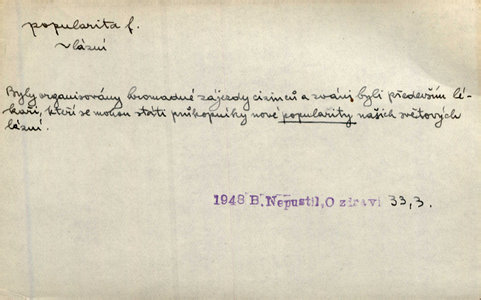 popularita f.
~ lázní
Byly organisovány hromadné zájezdy cizinců a zváni byli především lé-
kaři, kteří se mohou státi průkopníky nové popularity našich světových
lázní.
1948 B. Nepustil, O zdraví 33,3.